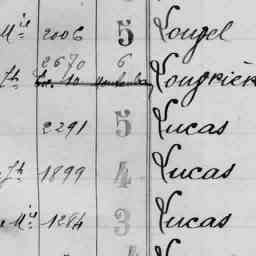 Mie 2006 5 Vougel
2670 6
Jh Vougrick
2291 5 Lucas
Jh 1899 4 Lucas
Mie 1284 3 Lucas